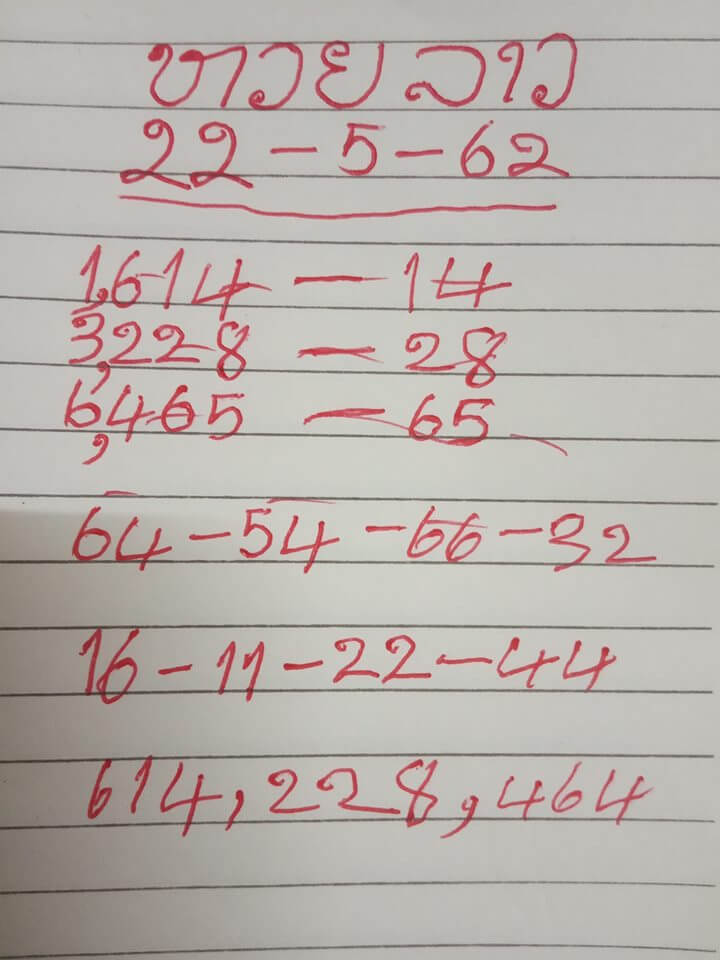 ຫວຍ ລາວ
22 - 5 - 62
1,614 — 14
3,228 — 28
6,465 — 65
64 - 54 - 66 - 32
16 - 11 - 22 - 44
614, 228, 464